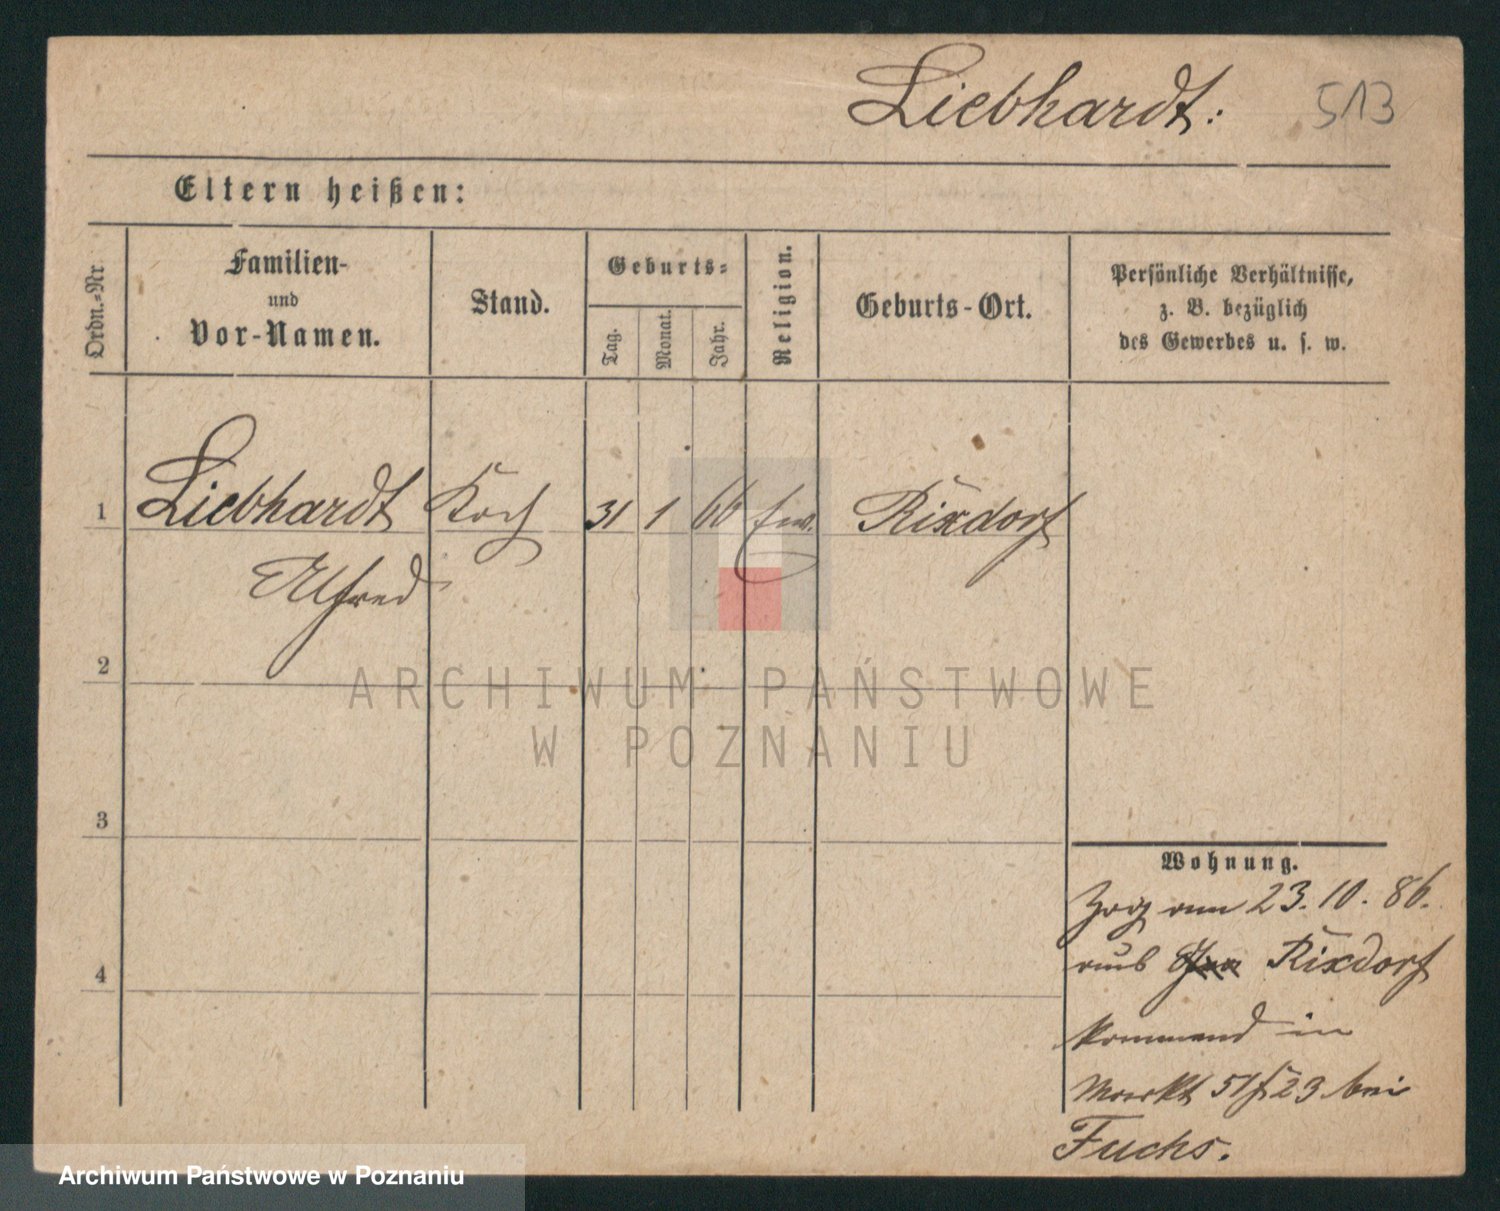 Liebhardt: 513
Eltern heißen:
Ordn.=Nr
Familien-
und
Vor-Namen.
Stand.
Geburts=
Tag.
Monat.
Jahr.
Religion.
Geburts-Ort.
Persönliche Verhältnisse,
z. B. bezüglich
des Gewerbes u. s. w.
1 Liebhardt Koch 31 1 66 ew. Rixdorf
Alfred
2
3
4
Wohnung.
Zog am 23. 10. 86.
aus Rixdorf
kommend in
Markt 51/52 3 bei
Fuchs.
ARCHIWUM PAŃSTWOWE
W POZNANIU
Archiwum Państwowe w Poznaniu